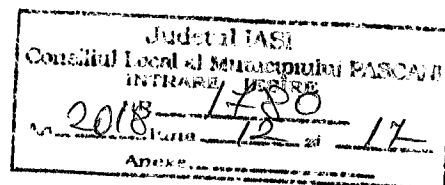 Judetul IASI
Consiliul Local al Municipiului PASCANI
INTRARE IESIRE
NR 1780
2018 luna 12 zi 17
Anexe